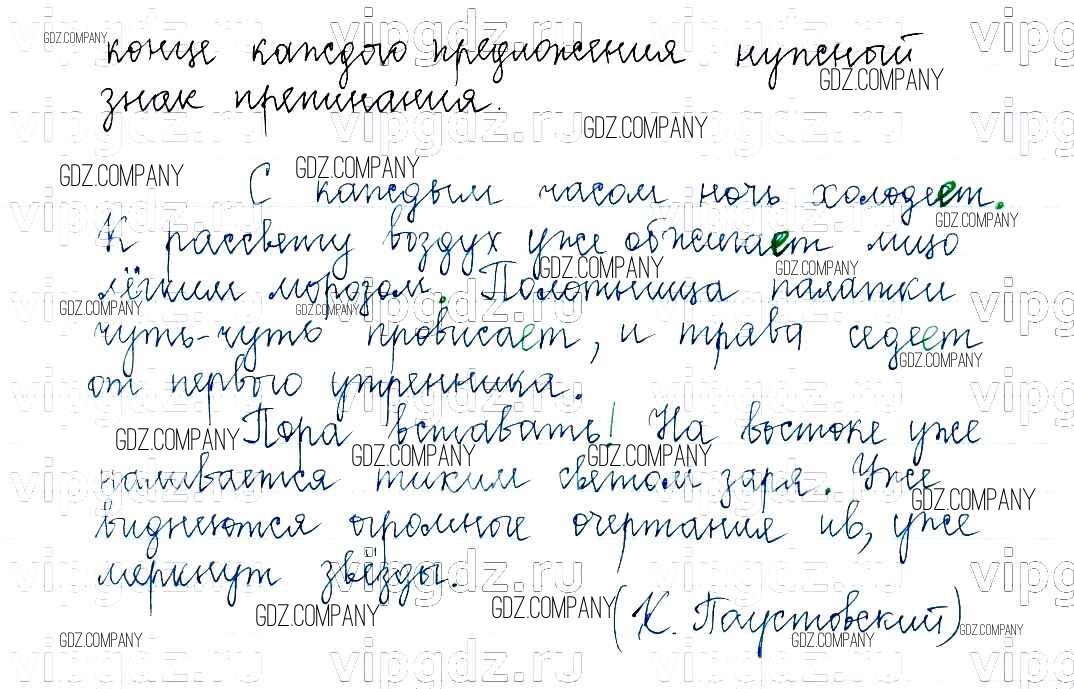 конце каждого предложения нужный
знак препинания.
С каждым часом ночь холодеет.
К рассвету воздух уже обжигает лицо
лёгким морозом. Полотнища палатки
чуть-чуть провисает, и трава седеет
от первого утренника.
Пора вставать! На востоке уже
наливается тихим светом заря. Уже
виднеются огромные очертания ив, уже
меркнут звёзды.
(К. Паустовский)